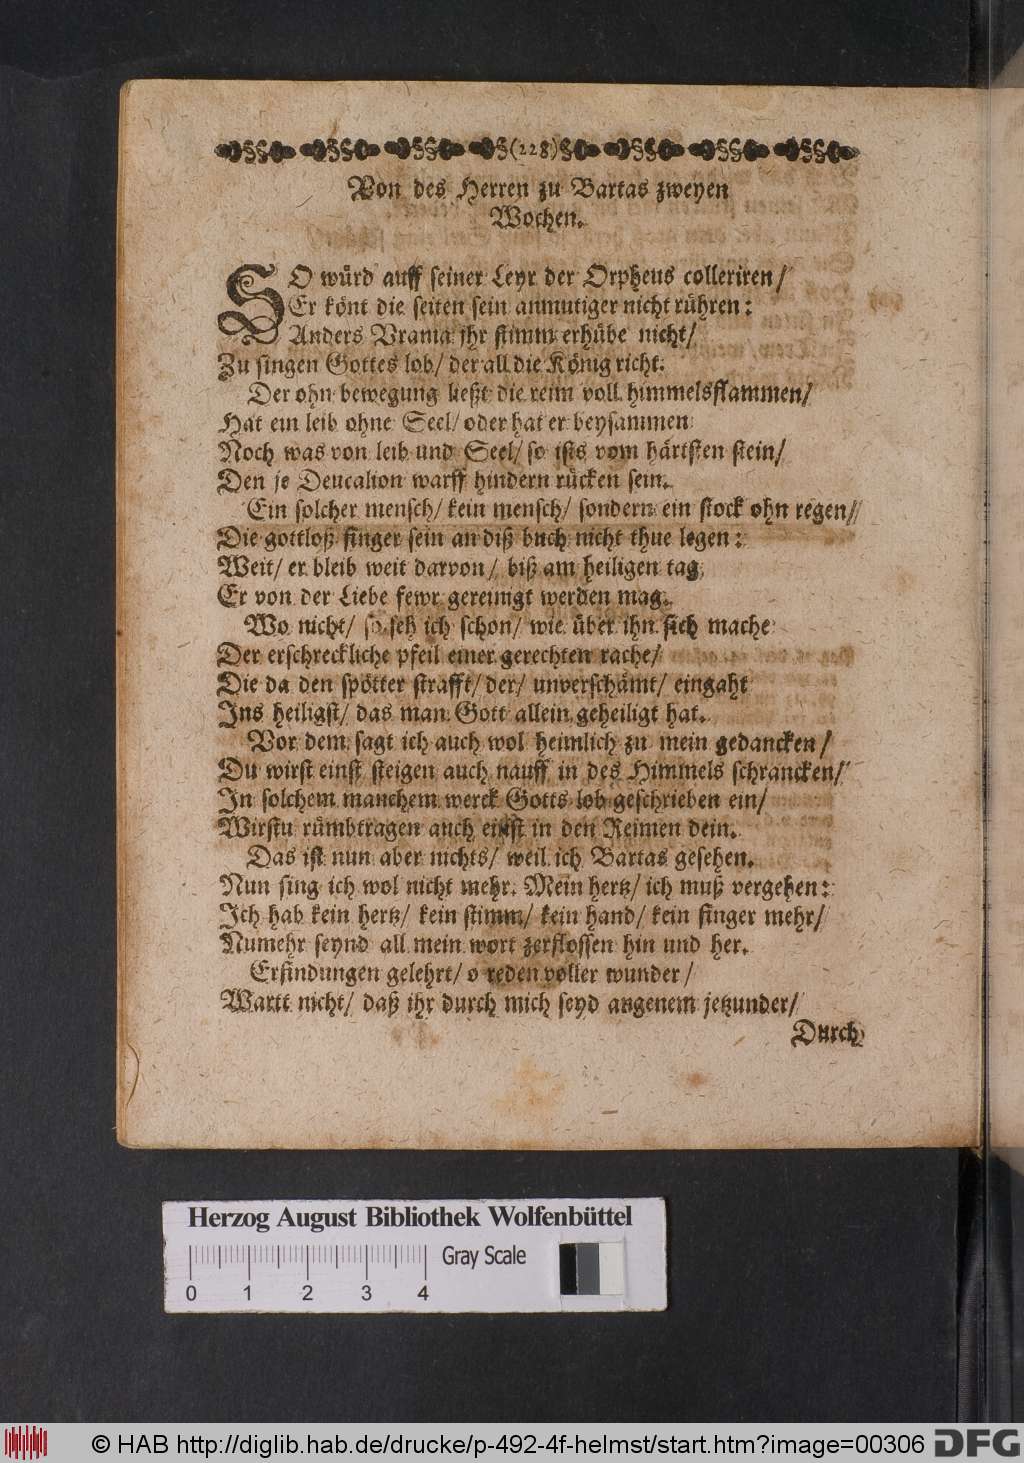 (228)
Von des Herren zu Bartas zweyen
Wochen.
SO würd auff seiner Leyr der Orpheus colleriren/
Er könt die seiten sein anmutiger nicht rühren:
Anders Vrania jhr stimm erhübe nicht/
Zu singen Gottes lob/ der all die König richt.
Der ohn bewegung ließt die reim voll himmelsflammen/
Hat ein leib ohne Seel/ oder hat er beysammen
Noch was von leib und Seel/ so ists vom härtsten stein/
Den je Deucalion warff hindern rücken sein.
Ein solcher mensch/ kein mensch/ sondern ein stock ohn regen//
Die gottloß finger sein an diß buch nicht thue legen:
Weit/ er bleib weit darvon/ biß am heiligen tag
Er von der Liebe fewr gereinigt werden mag.
Wo nicht/ so seh ich schon/ wie über ihn sich mache
Der erschreckliche pfeil einer gerechten rache/
Die da den spötter strafft/ der/ unverschämt/ eingaht
Ins heiligst/ das man Gott allein geheiligt hat.
Vor dem sagt ich auch wol heimlich zu mein gedancken/
Du wirst einst steigen auch nauff in des Himmels schrancken/
In solchem manchem werck Gotts lob geschrieben ein/
Wirstu rümbtragen auch einst in den Reimen dein.
Das ist nun aber nichts/ weil ich Bartas gesehen.
Nun sing ich wol nicht mehr. Mein hertz/ ich muß vergehen:
Ich hab kein hertz/ kein stimm/ kein hand/ kein finger mehr/
Numehr seynd all mein wort zerflossen hin und her.
Erfindungen gelehrt/ o reden voller wunder/
Wartt nicht/ daß ihr durch mich seyd angenem jetzunder/
Durch
Herzog August Bibliothek Wolfenbüttel
Gray Scale
0 1 2 3 4
© HAB http://diglib.hab.de/drucke/p-492-4f-helmst/start.htm?image=00306
DFG